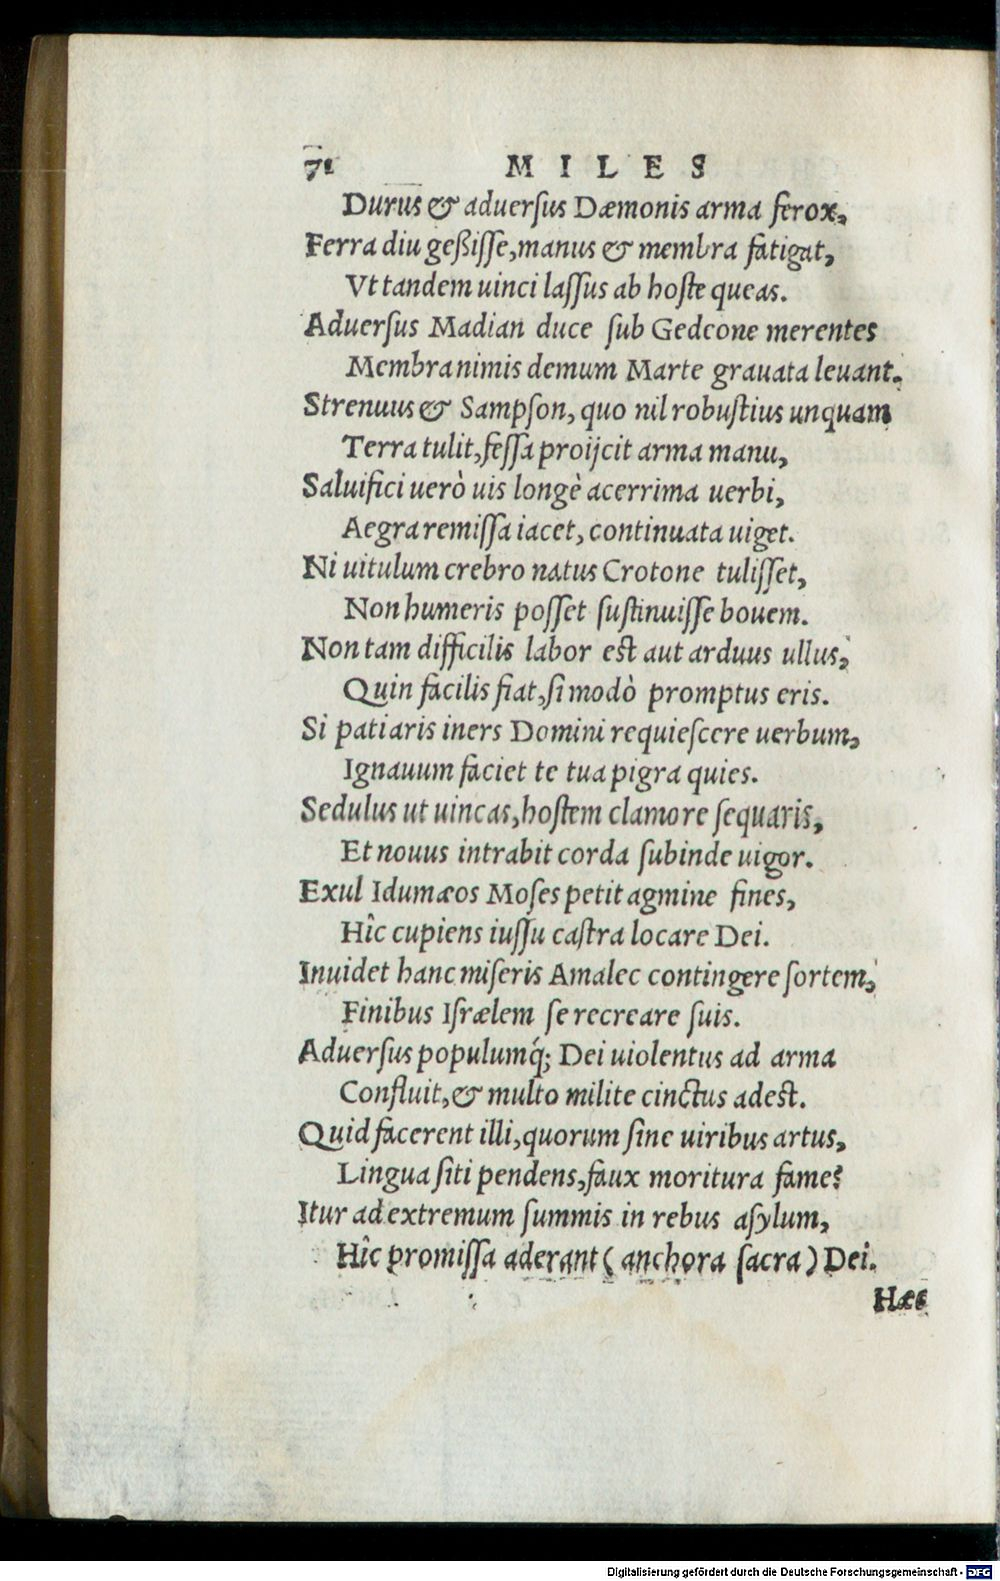 71 MILES
Durus & aduerſus Dæmonis arma ferox,
Ferra diu geßiſſe, manus & membra fatigat,
Vt tandem uinci laſſus ab hoſte queas.
Aduerſus Madian duce ſub Gedeone merentes
Membra nimis demum Marte grauata leuant.
Strenuus & Sampſon, quo nil robuſtius unquam
Terra tulit, feſſa proijcit arma manu,
Saluifici uerò uis longè acerrima uerbi,
Aegra remiſſa iacet, continuata uiget.
Ni uitulum crebro natus Crotone tuliſſet,
Non humeris poſſet ſuſtinuiſſe bouem.
Non tam difficilis labor eſt aut arduus ullus,
Quin facilis fiat, ſi modò promptus eris.
Si patiaris iners Domini requieſcere uerbum,
Ignauum faciet te tua pigra quies.
Sedulus ut uincas, hoſtem clamore ſequaris,
Et nouus intrabit corda ſubinde uigor.
Exul Idumæos Moſes petit agmine fines,
Hîc cupiens iuſſu caſtra locare Dei.
Inuidet hanc miſeris Amalec contingere ſortem,
Finibus Iſrælem ſe recreare ſuis.
Aduerſus populumq́; Dei uiolentus ad arma
Confluit, & multo milite cinctus adeſt.
Quid facerent illi, quorum ſine uiribus artus,
Lingua ſiti pendens, faux moritura fame?
Itur ad extremum ſummis in rebus aſylum,
Hîc promiſſa aderant (anchora ſacra) Dei.
Hæc
Digitalisierung gefördert durch die Deutsche Forschungsgemeinschaft - DFG